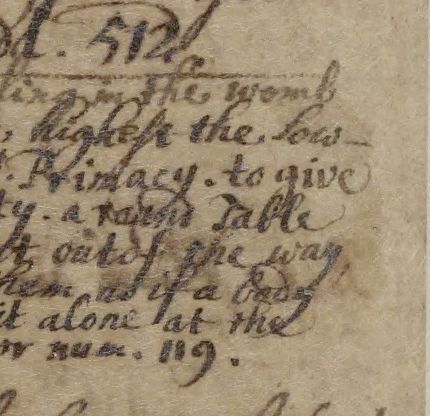 ol. 512
ling in the womb
, highest the low-
. Primacy. to give
ty. a round Table
t out of the way
hem as if a body
it alone at the
or num. 119.